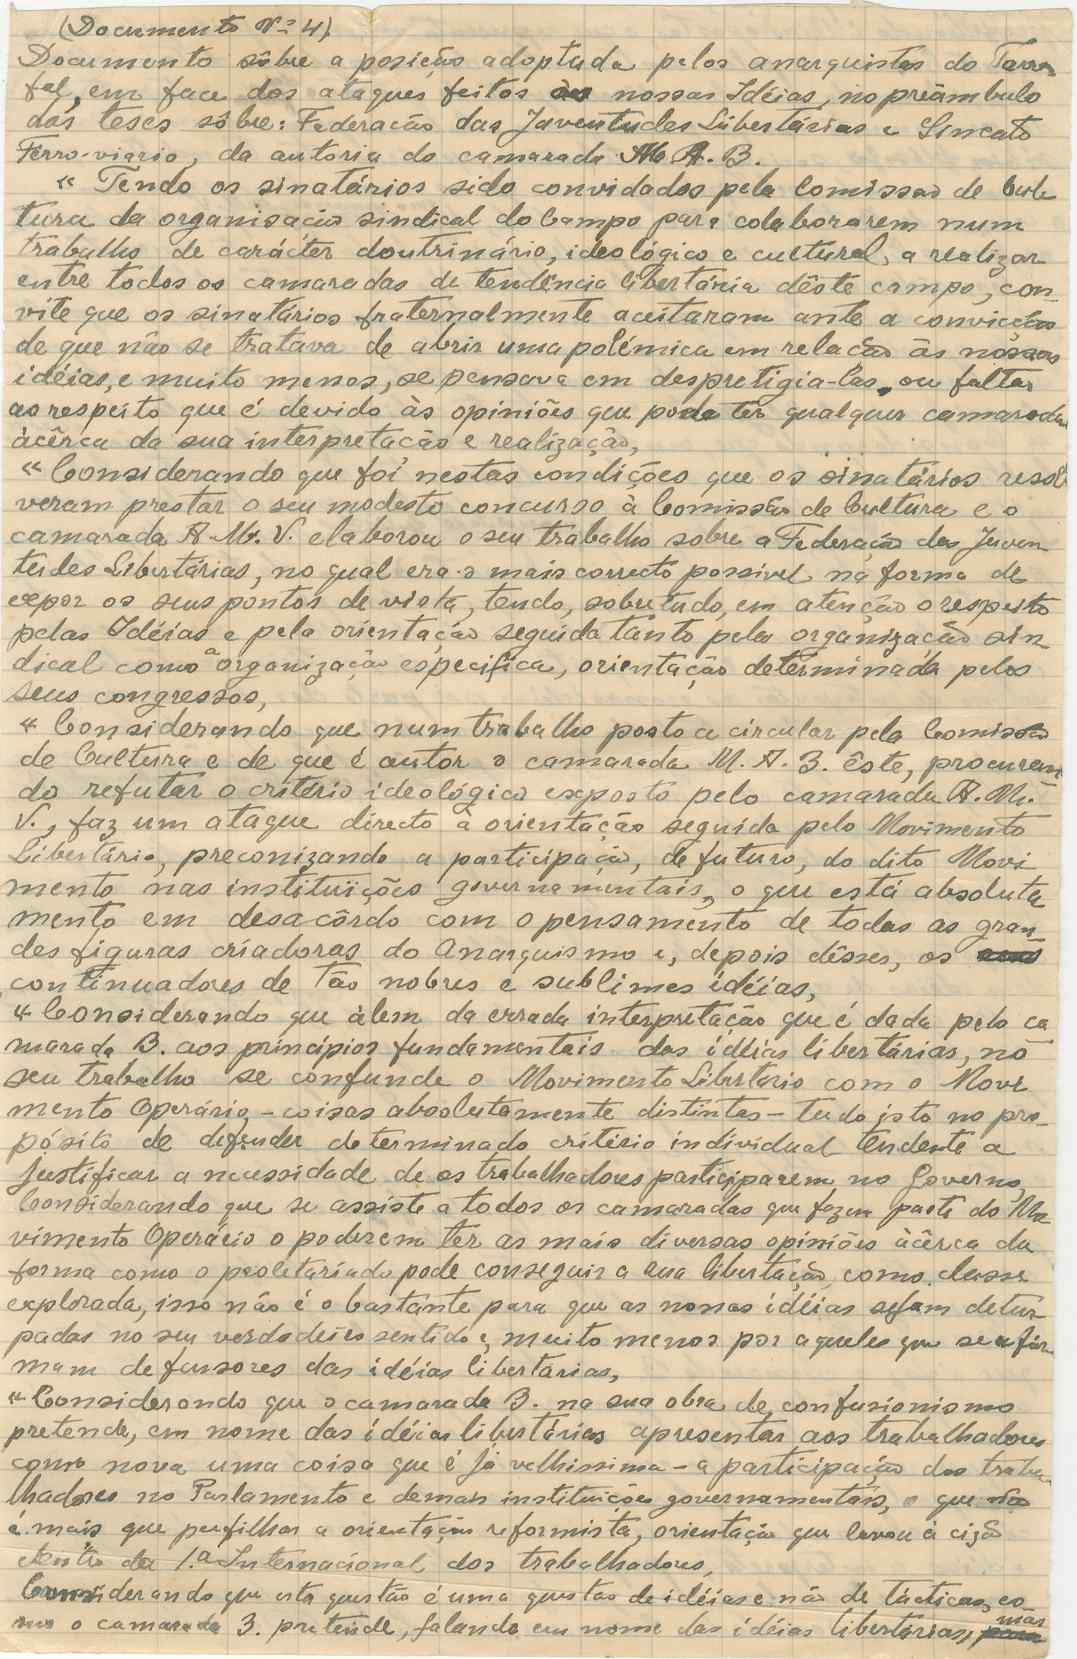 (Documento Nº 4)
Documento sôbre a posição adoptada pelos anarquistas do Tarra
fal, em face dos ataques feitos às nossas Idéias, no preâmbulo
das teses sôbre: Federação das Juventudes Libertárias e Sincato
Ferro-viario, da autoria do camarada M. A. B.
« Tendo os sinatários sido convidados pela Comissão de Cul
tura da organisação sindical do Campo para colaborarem num
trabalho de carácter doutrinário, ideológico e cultural, a realizar
entre todos os camaradas de tendência libertária dêste campo, con-
vite que os sinatários fraternalmente aceitaram ante a convicção
de que não se tratava de abrir uma polémica em relação às nossas
idéias, e muito menos, se pensava em desprestigia-las, ou faltar
ao respeito que é devido às opiniões que pode ter qualquer camarada
àcêrca da sua interpretação e realização,
« Considerando que foi nestas condições que os sinatários resol
veram prestar o seu modesto concurso à Comissão de Cultura e o
camarada A. M. V. elaborou o seu trabalho sobre a Federação das Juven
tudes Libertárias, no qual era o mais correcto possivel na forma de
expor os seus pontos de vista, tendo, sobretudo, em atenção o respeito
pelas Idéias e pela orientação seguida tanto pela organização sin
dical como a organização especifica, orientação determinada pelos
seus congressos,
« Considerando que num trabalho posto a circular pela Comissão
de Cultura e de que é autor o camarada M. A. B. êste, procuran
do refutar o critério ideológico exposto pelo camarada A. M.
V., faz um ataque directo à orientação seguida pelo Movimento
Libertário, preconizando a participação, de futuro, do dito Movi
mento nas instituïções governamentais, o que está absoluta
mente em desacôrdo com o pensamento de todas as gran-
des figuras criadoras do Anarquismo e, depois dêsses, os
continuadores de tão nobres e sublimes idéias,
« Considerando que àlem da errada interpretação que é dada pelo ca
marada B. aos princípios fundamentais das idéias libertárias, no
seu trabalho se confunde o Movimento Libertario com o Movi
mento Operário - coisas absolutamente distintas - tudo isto no pro-
pósito de defender determinado critério individual tendente a
justificar a necessidade de os trabalhadores participarem no Governo,
Considerando que se assiste a todos os camaradas que fazem parte do Mo
vimento Operário o poderem ter as mais diversas opiniões àcêrca da
forma como o proletariado pode conseguir a sua libertação, como classe
explorada, isso não é o bastante para que as nossas idéias sejam detur-
padas no seu verdadeiro sentido e, muito menos por aqueles que se afir
mam defensores das idéias libertárias,
« Considerando que o camarada B. na sua obra de confusionismo
pretende, em nome das idéias libertárias apresentar aos trabalhadores
como nova uma coisa que é já velhissima - a participação dos traba-
lhadores no Parlamento e demais instituições governamentais, o que não
é mais que perfilhar a orientação reformista, orientação que levou à cisão
dentro da 1.ª Internacional dos trabalhadores,
Considerando que esta questão é uma questão de idéias e não de tácticas, co
mo o camarada B. pretende, falando em nome das idéias libertárias, mas